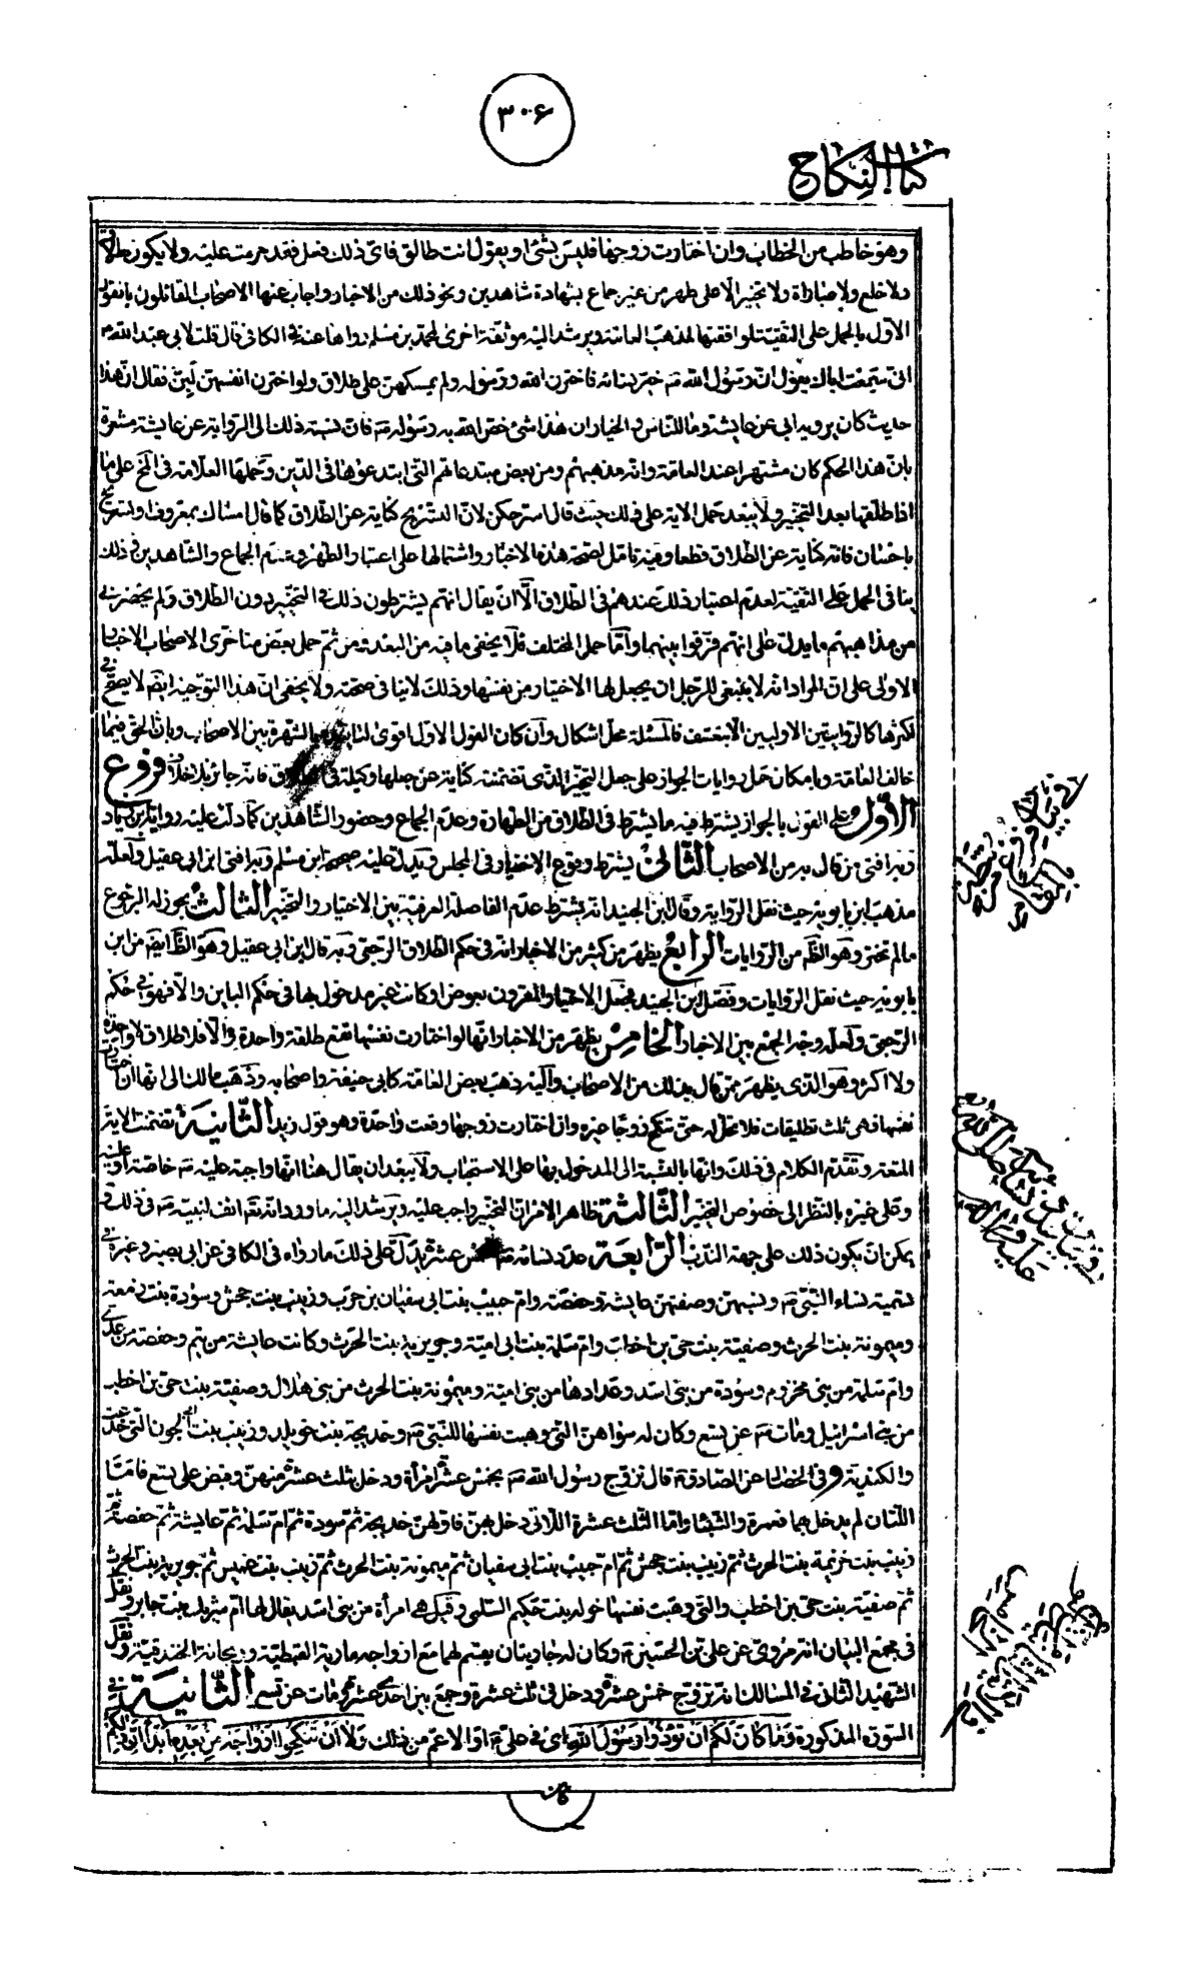 ٣٠٦
كتاب النكاح
وهو خاطب من الخطاب وان اختارت زوجها فليس بشئ او يقول انت طالق فاى ذلك فعل فقد حرمت عليه ولا يكون طلاق
ولا خلع ولا مباراة ولا تخيير الا على طهر من غير جماع بشهادة شاهدين ونحو ذلك من الاخبار واجاب عنها الاصحاب القائلون بالقول
الاول بالحمل على التقية لموافقتها لمذهب العامة ويرشد اليه موثقة اخرى لمحمد بن مسلم رواها عنه فى الكافى قال قلت لابى عبد الله ع
انى سمعت اباك يقول ان رسول الله ص خير نسائه فاخترن الله ورسوله ولم يمسكهن على طلاق ولو اخترن انفسهن لبن فقال ان هذا
حديث كان يرويه ابى عن عايشة وما للناس والخيار ان هذا شئ خص الله به رسوله ص فان نسبة ذلك الى الرواية عن عايشة مشعرة
بان هذا الحكم كان مشتهرا عند العامة وانه مذهبهم ومن بعض مبتدعاتهم التى ابتدعوها فى الدين وحملها العلامة فى المخ على ما
اذا طلقها بعد التخيير ولا يبعد حمل الاية على ذلك حيث قال اسرحكن لان التسريح كناية عن الطلاق كما قال امساك بمعروف او تسريح
باحسان فانه كناية عن الطلاق قطعا وفيه تامل لصحة هذه الاخبار واشتمالها على اعتبار الطهر وعدم الجماع والشاهدين فى ذلك
ينافى الحمل على التقية لعدم اعتبار ذلك عندهم فى الطلاق الا ان يقال انهم يشترطون ذلك فى التخيير دون الطلاق ولم يحضرنى
من مذاهبهم ما يدل على انهم فرقوا بينهما واما حمل المختلف فلا يخفى ما فيه من البعد ومن ثم حمل بعض متاخرى الاصحاب الاخبار
الاولى على ان المراد انه لا ينبغى للرجل ان يجعل لها الاختيار من نفسها وذلك لا ينافى صحته ولا يخفى ان هذا التوجيه ايضا لا يصح فى
اكثرها كالروايتين الاوليين الا بتعسف فالمسئلة محل اشكال وان كان القول الاول اقوى الشهرة بين الاصحاب وبان الحق فيما
خالف العامة وبامكان حمل روايات الجواز على جعل التخيير الذى تضمنته كناية عن جعلها وكيلة فى الطلاق فانه جائز بلا خلاف فروع
الاول على القول بالجواز يشترط فيه ما يشترط فى الطلاق من الطهارة وعدم الجماع وحضور الشاهدين كما دلت عليه رواية
وبه افتى من قال به من الاصحاب الثانى يشترط وقوع الاختيار فى المجلس ويدل عليه صحيحة ابن مسلم وبه افتى ابن ابى عقيل ولعله
مذهب ابن بابويه حيث نقل الرواية وقال ابن الجنيد انه يشترط عدم الفاصلة العرفية بين الاختيار والتخيير الثالث يجوز له الرجوع
ما لم تختر وهو الظ من الروايات الرابع يظهر من كثير من الاخبار انه فى حكم الطلاق الرجعى وبه قال ابن ابى عقيل وهو الظ ايضا من ابن
بابويه حيث نقل الروايات وفصل ابن الجنيد فجعل الاختيار المقرون بعوض او كانت غير مدخول بها فى حكم الباين والا فهو فى حكم
الرجعى ولعله وجه الجمع بين الاخبار الخامس يظهر من الاخبار انها لو اختارت نفسها تقع طلقة واحدة والا فلا طلاق لا واحدة
ولا اكثر وهو الذى يظهر ممن قال بذلك من الاصحاب واليه ذهب بعض العامة كابى حنيفة واصحابه وذهب مالك الى انها ان اختارت
نفسها فهى ثلث تطليقات فلا تحل له حتى تنكح زوجا غيره وان اختارت زوجها وقعت واحدة وهو قول زيد الثانية تضمنت الاية
المتعة وتقدم الكلام فى ذلك وانها بالنسبة الى المدخول بها على الاستحباب ولا يبعد ان يقال هنا انها واجبة عليه ص خاصة او عليه
وعلى غيره بالنظر الى خصوص التخيير الثالثة ظاهر الامر ان التخيير واجب عليه ويرشد اليه ما ورد انه تع انف لنبيه ص فى ذلك و
يمكن ان يكون ذلك على جهة الندب الرابعة عدد نسائه ص خمس عشرة يدل على ذلك ما رواه فى الكافى عن ابى بصير وغيره فى
تسمية نساء النبى ص ونسبهن وصفتهن عايشة وحفصة وام حبيب بنت ابى سفيان بن حرب وزينب بنت جحش وسودة بنت زمعة
وميمونة بنت الحرث وصفية بنت حى بن اخطب وام سلمة بنت ابى امية وجويرية بنت الحرث وكانت عايشة من تيم وحفصة من عدى
وام سلمة من بنى مخزوم وسودة من بنى اسد وعدادها من بنى امية وميمونة بنت الحرث من بنى هلال وصفية بنت حى بن اخطب
من بنى اسرائيل ومات ص عن تسع وكان له سواهن التى وهبت نفسها للنبى ص وخديجة بنت خويلد وزينب بنت ابى الجون التى خدعت
والكندية وفى الخصال عن الصادق ع قال تزوج رسول الله ص بخمس عشرة امرأة ودخل بثلث عشرة منهن وقبض على تسع فاما
اللتان لم يدخل بهما فعمرة والشنبا واما الثلث عشرة اللاتى دخل بهن فاولهن خديجة ثم سودة ثم ام سلمة ثم عايشة ثم حفصة ثم
زينب بنت خزيمة بنت الحرث ثم زينب بنت جحش ثم ام حبيب بنت ابى سفيان ثم ميمونة بنت الحرث ثم زينب بنت عميس ثم جويرية بنت الحرث
ثم صفية بنت حى بن اخطب والتى وهبت نفسها خوله بنت حكيم السلمى وقيل هى امرأة من بنى اسد يقال لها ام شريك بنت جابر ونقل
فى مجمع البيان انه مروى عن على بن الحسين ع وكان له جاريتان يقسم لهما مع ازواجه مارية القبطية وريحانة الخندقية ونقل
الشهيد الثانى فى المسالك انه تزوج خمس عشرة ودخل فى ثلث عشرة وجمع بين احدى عشرة ومات عن تسع الثانية فى
السورة المذكورة وما كان لكم ان تؤذوا رسول الله اى فى على ع او الاعم من ذلك ولا ان تنكحوا ازواجه من بعده ابدا ان ذلكم
كان